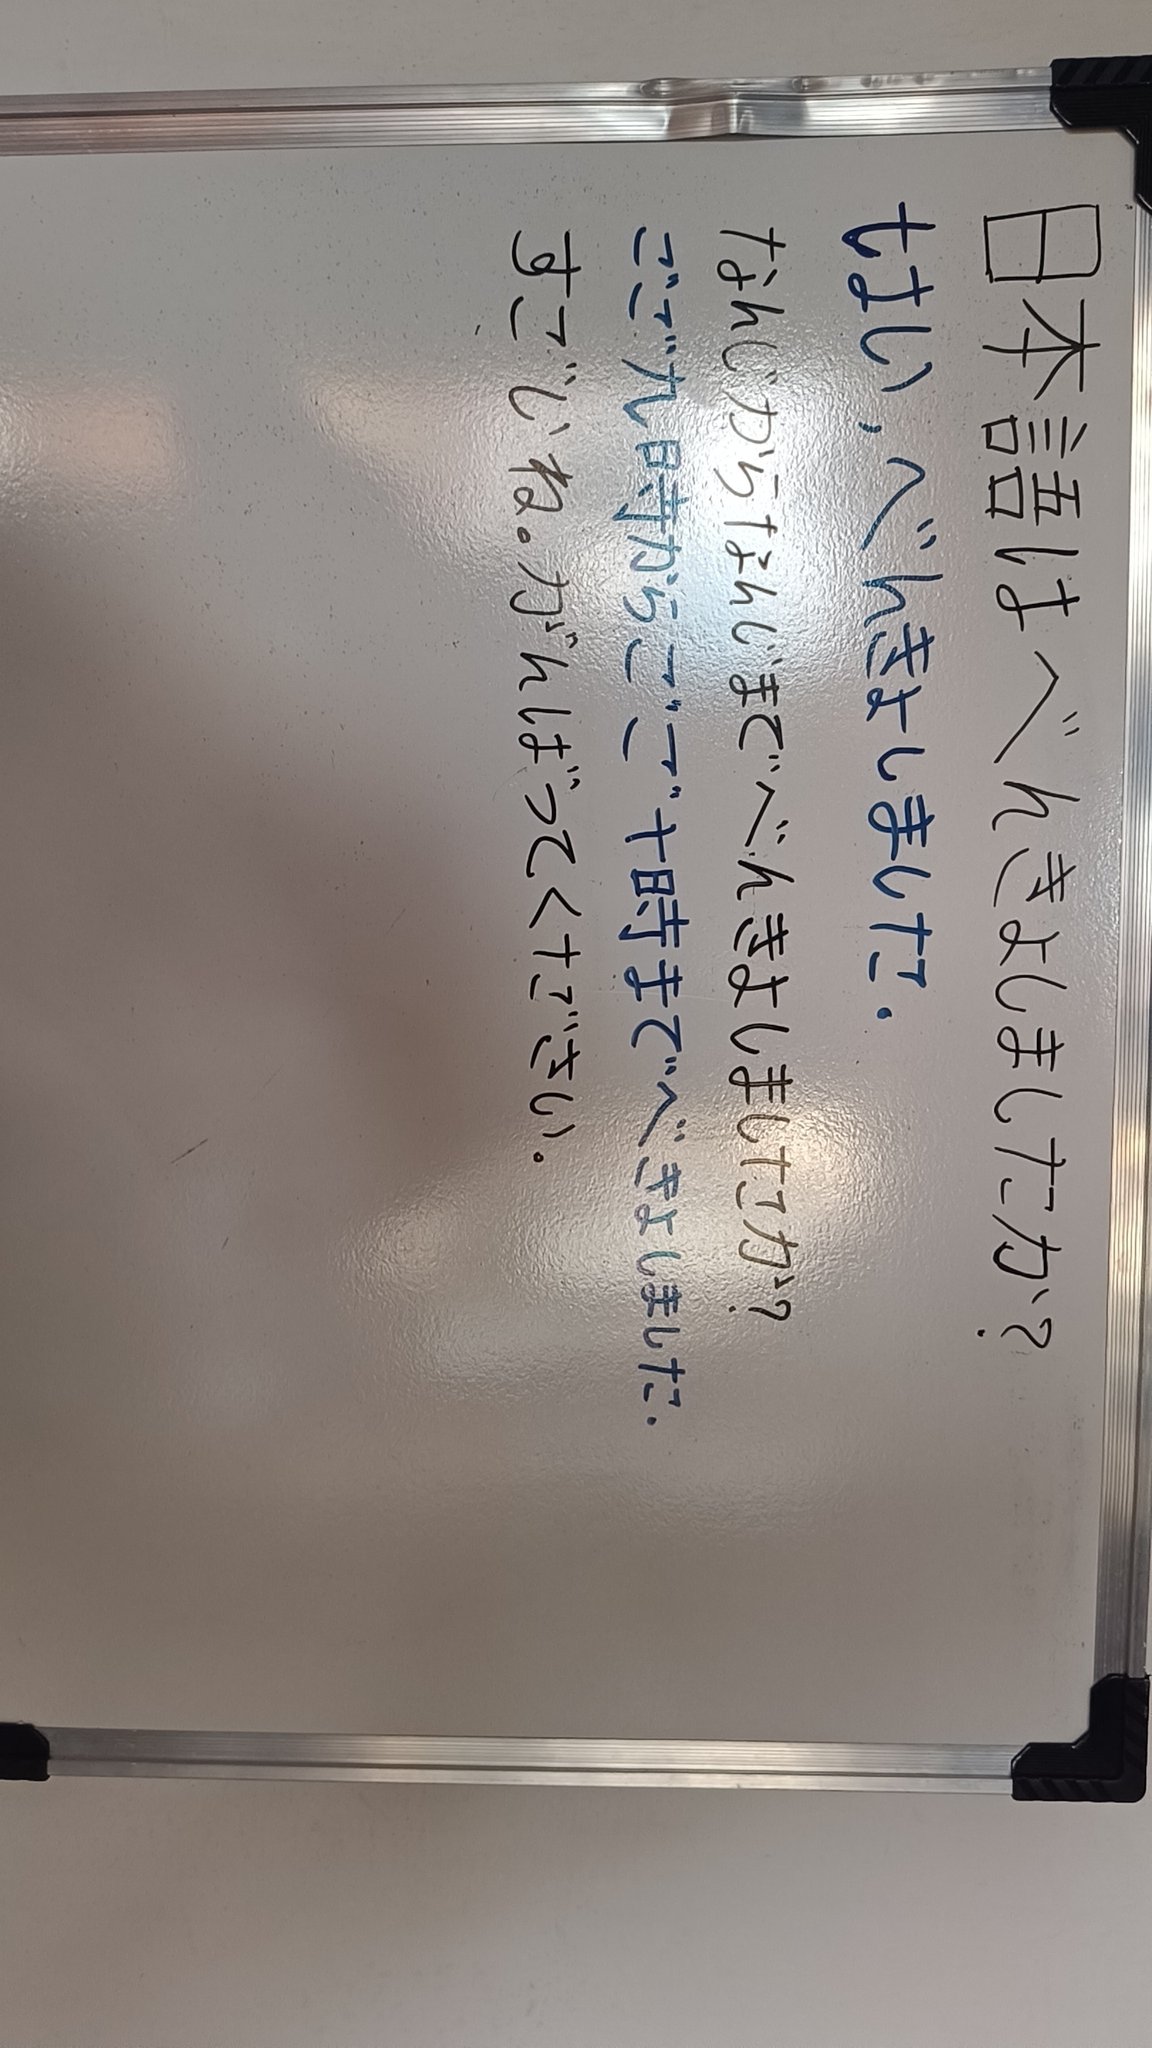 日本語はべんきよしましたか?
はい,べんきよしました.
なんじからなんじまでべんきよしましたか?
ごご九時からごご十時までべきよしました.
すごいね。がんばってください.